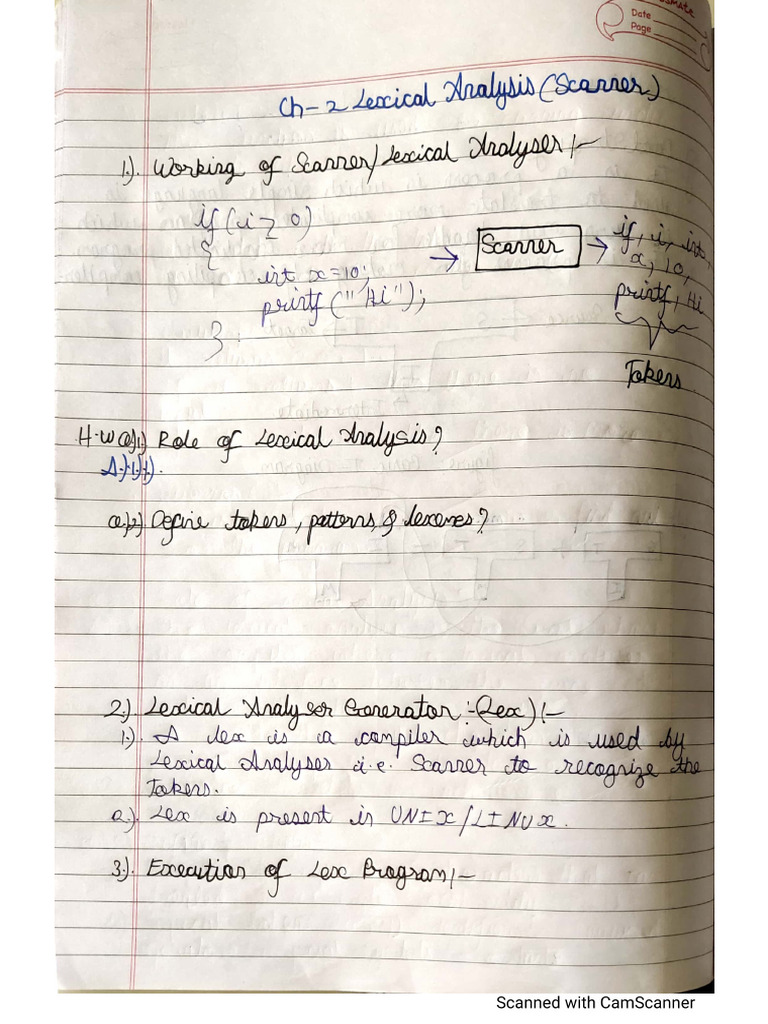 Date
Page
Ch-2 Lexical Analysis (Scanner)
1.). Working of Scanner/Lexical Analyser/:-
if (i ≥ 0)
{
int x=10;
printf ("Hi");
}
→ Scanner →
if, i, int,
x, 10,
printf, Hi
Tokens
H.W Q.1) Role of Lexical Analysis?
A.1).
Q.2) Define tokens, patterns & lexemes?
2.) Lexical Analyser Generator :-(Lex)/-
1.). A lex is a compiler which is used by
Lexical Analyser i.e. Scanner to recognize the
Tokens.
2.) Lex is present in UNIX/LINUX.
3.). Execution of Lex Program/-
Scanned with CamScanner